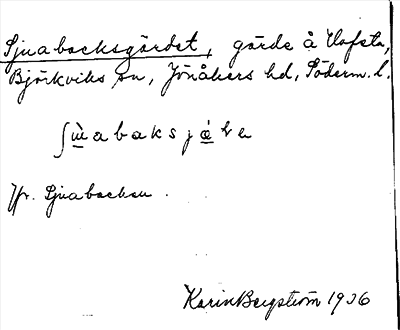 Sjuabacksgärdet, gärde å Hofsta,
Björkviks sn, Jönåkers hd, Söderm. l.
Jfr. Sjuabacken.
Karin Bergström 1936